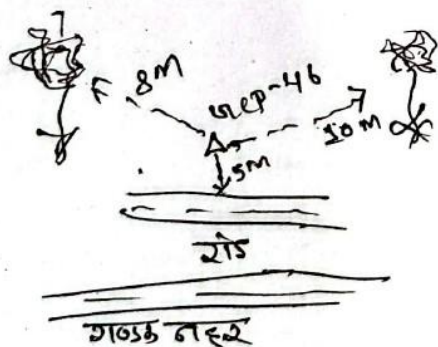 8M
GCP-46
10M
5M
रोड
गण्डक नहर